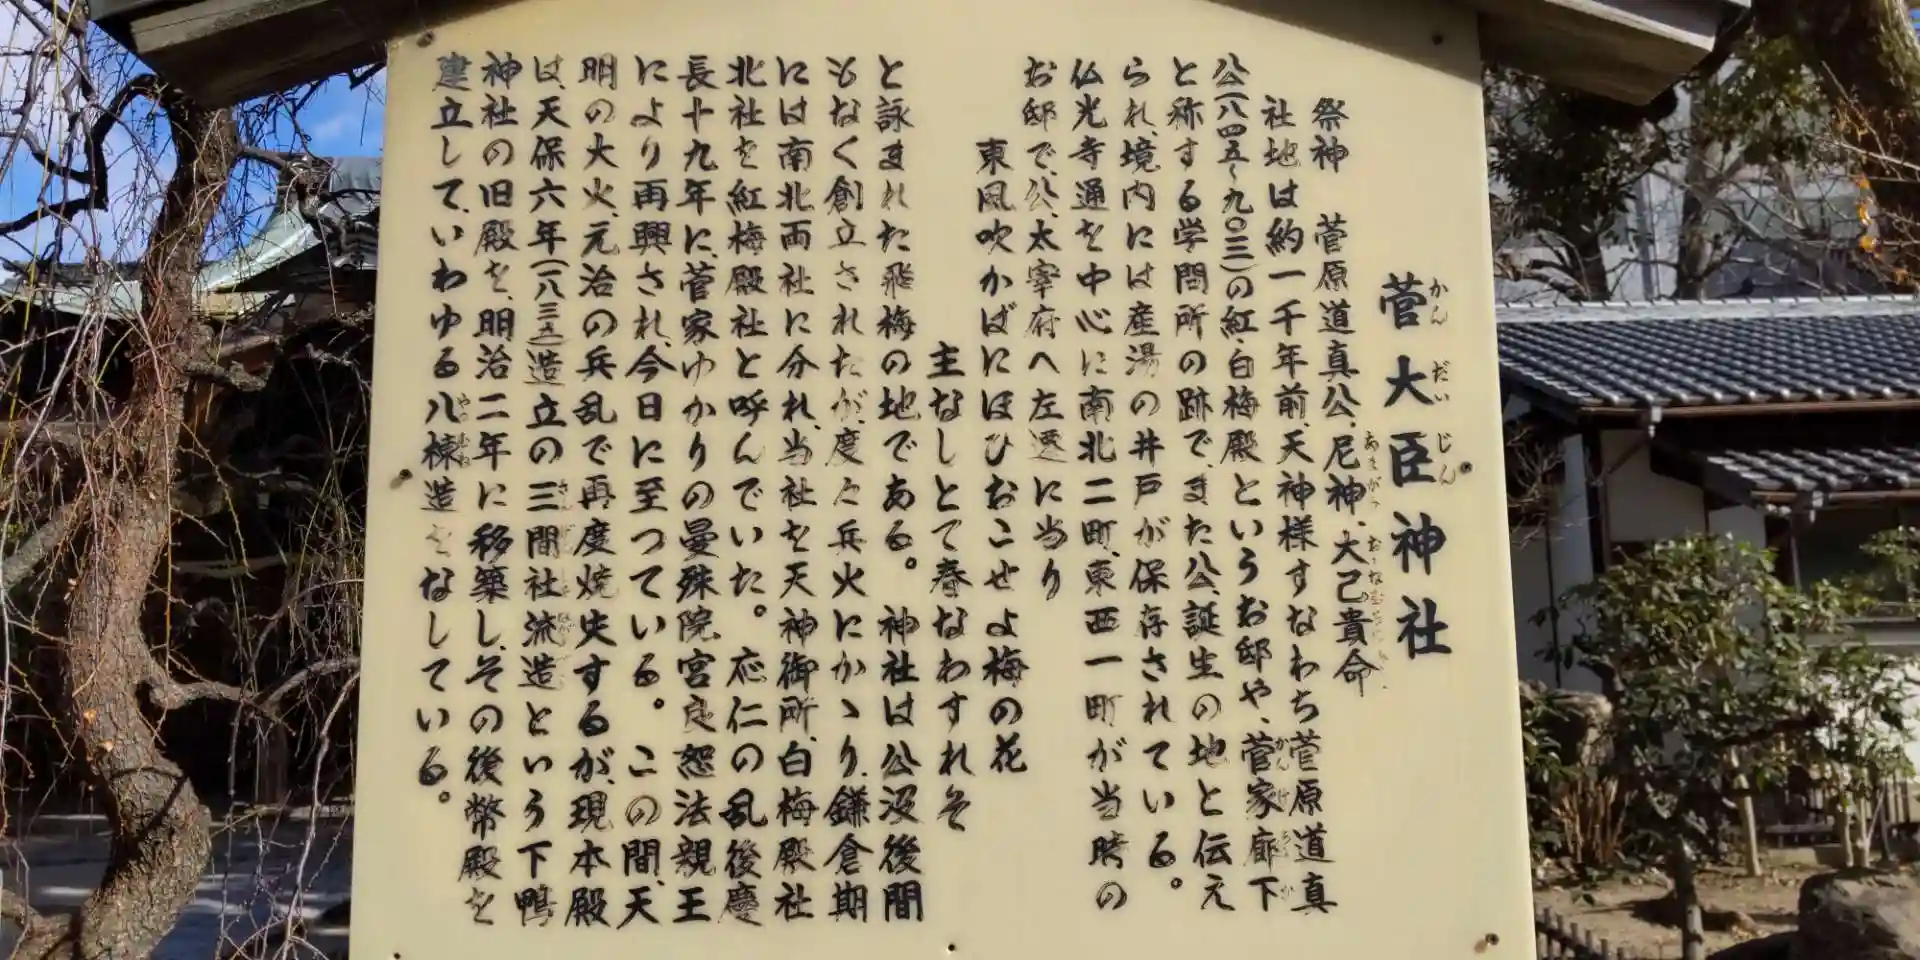 菅大臣神社
かん だい じん
祭神 菅原道真公、尼神、大己貴命
社地は約一千年前、天神様すなわち菅原道真
公(八四五〜九〇三)の紅・白梅殿というお邸や、菅家廊下
と称する学問所の跡で、また公、誕生の地と伝え
られ、境内には産湯の井戸が保存されている。
仏光寺通を中心に南北二町、東西一町が当時の
お邸で、公、太宰府へ左遷に当り
東風吹かばにほひおこせよ梅の花
主なしとて春なわすれそ
と詠まれた飛梅の地である。 神社は公没後間
もなく創立されたが、度々兵火にかゝり、鎌倉期
には南北両社に分れ、当社を天神御所、白梅殿社
北社を紅梅殿社と呼んでいた。応仁の乱後慶
長十九年に、菅家ゆかりの曼殊院宮良恕法親王
により再興され、今日に至つている。この間、天
明の大火、元治の兵乱で再度焼失するが、現本殿
は、天保六年(一八三五)造立の三間社流造という下鴨
神社の旧殿を、明治二年に移築し、その後幣殿を
建立して、いわゆる八棟造をなしている。